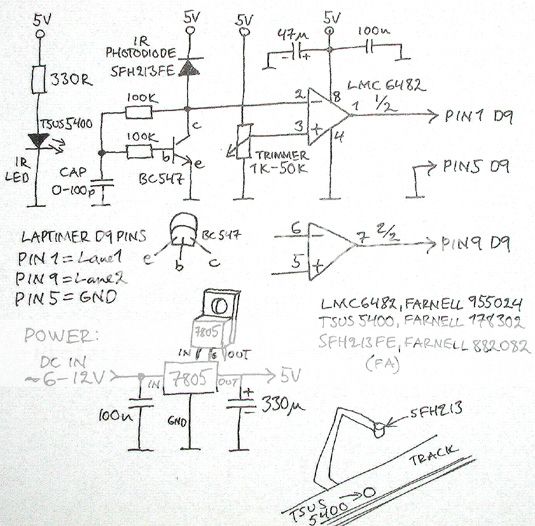 5V
5V
5V
5V
IR
PHOTODIODE
SFH213FE
47µ
- +
100n
330R
TSUS5400
IR
LED
100K
100K
CAP
0-100p
c
b
e
BC547
TRIMMER
1K-50K
LMC6482
2
3
8
4
1
1/2
PIN1 D9
PIN5 D9
LAPTIMER D9 PINS
PIN 1 = Lane1
PIN 9 = Lane2
PIN 5 = GND
BC547
e
b
c
6
5
7
2/2
PIN9 D9
LMC6482, FARNELL 955024
TSUS 5400, FARNELL 179302
SFH213FE, FARNELL 882082
(FA)
POWER:
DC IN
~6-12V
7805
IN
G
OUT
IN
7805
OUT
5V
GND
100n
+
330µ
SFH213
TRACK
TSUS
5400